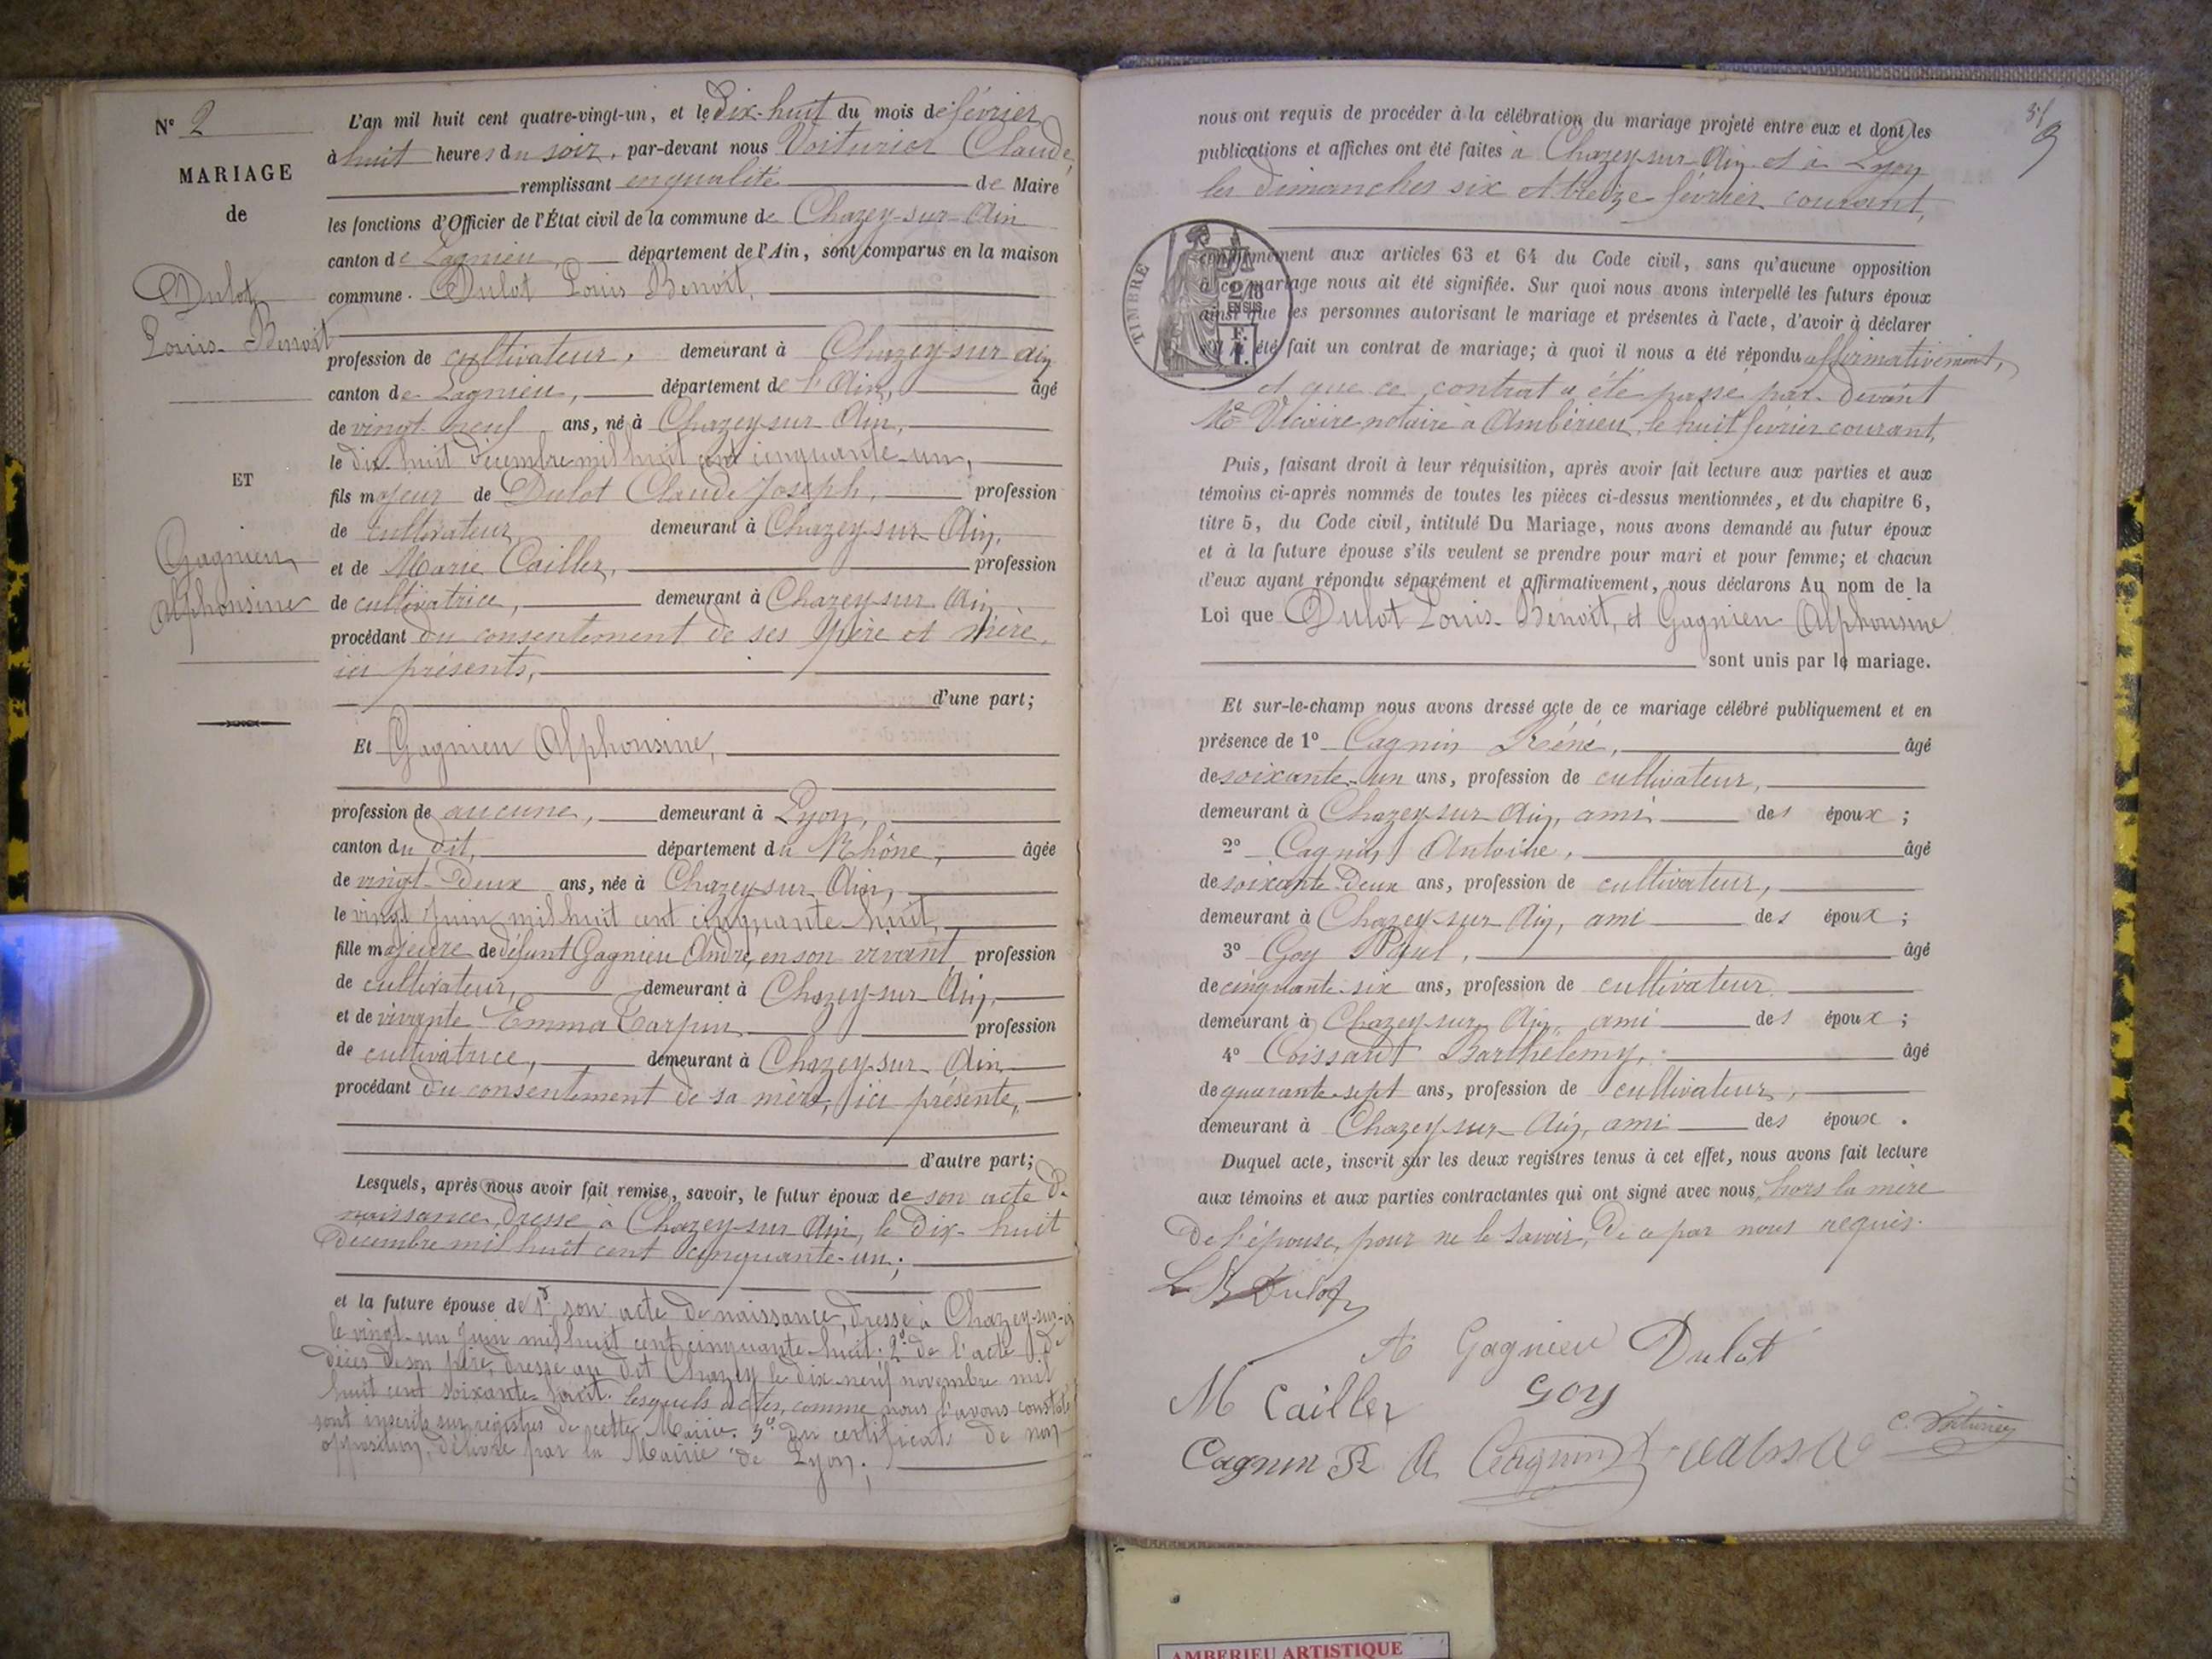 N° 2
MARIAGE
de
Dulot
Louis-Benoit
ET
Gagnieu
Alphonsine
L'an mil huit cent quatre-vingt-un, et le Dix-huit du mois de février
à huit heures du soir, par-devant nous Voiturier Claude,
remplissant en qualité de Maire
les fonctions d'Officier de l'État civil de la commune de Chazey-sur-Ain
canton de Lagnieu, département de l'Ain, sont comparus en la maison
commune. Dulot Louis Benoit,
profession de cultivateur, demeurant à Chazey-sur-Ain
canton de Lagnieu, département de l'Ain, âgé
de vingt-neuf ans, né à Chazey-sur-Ain,
le dix-huit décembre mil huit cent cinquante-un,
fils majeur de Dulot Claude Joseph, profession
de cultivateur, demeurant à Chazey-sur-Ain,
et de Marie Cailler, profession
de cultivatrice, demeurant à Chazey-sur-Ain,
procédant du consentement de ses père et mère,
ici présents,
d'une part;
Et Gagnieu Alphonsine,
profession de aucune, demeurant à Lyon,
canton du dit, département du Rhône, âgée
de vingt-Deux ans, née à Chazey-sur-Ain,
le vingt Juin mil huit cent cinquante-huit,
fille majeure de défunt Gagnieu André, en son vivant profession
de cultivateur, demeurant à Chazey-sur-Ain,
et de vivante Emma Carpin profession
de cultivatrice, demeurant à Chazey-sur-Ain
procédant du consentement de sa mère, ici présente,
d'autre part;
Lesquels, après nous avoir fait remise, savoir, le futur époux de son acte de
naissance, dressé à Chazey-sur-Ain, le dix-huit
Décembre mil huit cent cinquante-un;
et la future épouse de 1° son acte de naissance, dressé à Chazey-sur-Ain
le vingt-un Juin mil huit cent cinquante-huit. 2° de l'acte de
décès de son père, dressé au dit Chazey le dix-neuf novembre mil
huit cent soixante-huit. lesquels actes, comme nous l'avons constaté
sont inscrits sur registres de cette Mairie. 3° Du certificat de non
opposition, délivré par la Mairie de Lyon;
9
nous ont requis de procéder à la célébration du mariage projeté entre eux et dont les
publications et affiches ont été faites à Chazey-sur-Ain et à Lyon
les dimanches six et treize février courant,
TIMBRE
2/10
EN SUS
conformément aux articles 63 et 64 du Code civil, sans qu'aucune opposition
à ce mariage nous ait été signifiée. Sur quoi nous avons interpellé les futurs époux
ainsi que les personnes autorisant le mariage et présentes à l'acte, d'avoir à déclarer
s'il a été fait un contrat de mariage; à quoi il nous a été répondu affirmativement,
et que ce contrat a été passé par devant
Me Vicaire notaire à Ambérieu, le huit février courant,
Puis, faisant droit à leur réquisition, après avoir fait lecture aux parties et aux
témoins ci-après nommés de toutes les pièces ci-dessus mentionnées, et du chapitre 6,
titre 5, du Code civil, intitulé Du Mariage, nous avons demandé au futur époux
et à la future épouse s'ils veulent se prendre pour mari et pour femme; et chacun
d'eux ayant répondu séparément et affirmativement, nous déclarons Au nom de la
Loi que Dulot Louis-Benoit, et Gagnieu Alphonsine
sont unis par le mariage.
Et sur-le-champ nous avons dressé acte de ce mariage célébré publiquement et en
présence de 1° Cagnin Réné, âgé
de soixante-un ans, profession de cultivateur,
demeurant à Chazey-sur-Ain, ami des époux;
2° Cagnin Antoine, âgé
de soixante-Deux ans, profession de cultivateur,
demeurant à Chazey-sur-Ain, ami des époux;
3° Goy Paul, âgé
de cinquante-six ans, profession de cultivateur
demeurant à Chazey-sur-Ain, ami des époux;
4° Coissard Barthélemy, âgé
de quarante-sept ans, profession de cultivateur,
demeurant à Chazey-sur-Ain, ami des époux.
Duquel acte, inscrit sur les deux registres tenus à cet effet, nous avons fait lecture
aux témoins et aux parties contractantes qui ont signé avec nous, hors la mère
De l'épouse, pour ne le savoir, De ce par nous requis.
L B Dulot
A Gagnieu Dulot
M Cailler Goy
Cagnin R A Cagnin C. Voiturier
AMBERIEU ARTISTIQUE